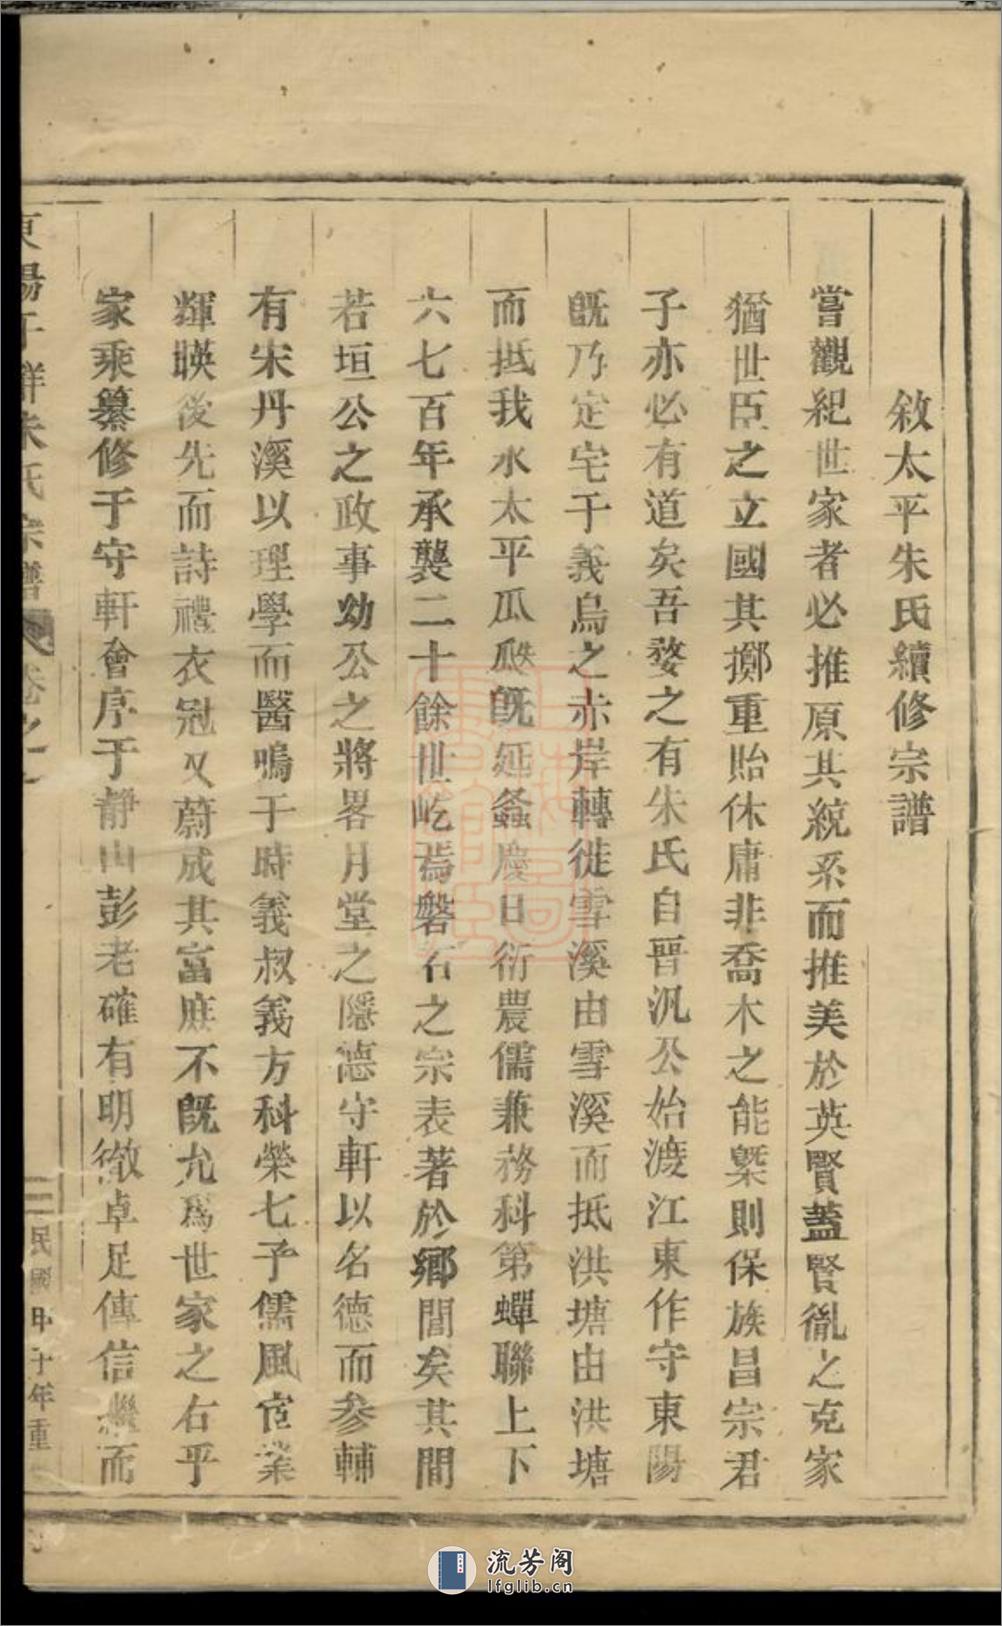 敘太平朱氏續修宗譜
嘗觀紀世家者必推原其統系而推美於英賢蓋賢胤之克家
猶世臣之立國其擲重貽休庸非喬木之能槩則保族昌宗君
子亦必有道矣吾婺之有朱氏自晉汎公始渡江東作守東陽
旣乃定宅于義烏之赤岸轉徙雪溪由雪溪而抵洪塘由洪塘
而抵我永太平瓜瓞旣延螽慶日衍農儒兼務科第蟬聯上下
六七百年承襲二十餘世屹焉磐石之宗表著於鄉閭矣其間
若垣公之政事幼公之將畧月堂之隱德守軒以名德而參輔
有宋丹溪以理學而醫鳴于時義叔義方科榮七子儒風宦業
輝暎後先而詩禮衣冠又蔚成其富庶不旣允爲世家之右乎
家乘纂修于守軒會序于靜山彭老確有明徵卓足傳信繼而
東陽 祥朱氏宗譜 卷之
民國甲子年重
流芳阁
lfglib.cn